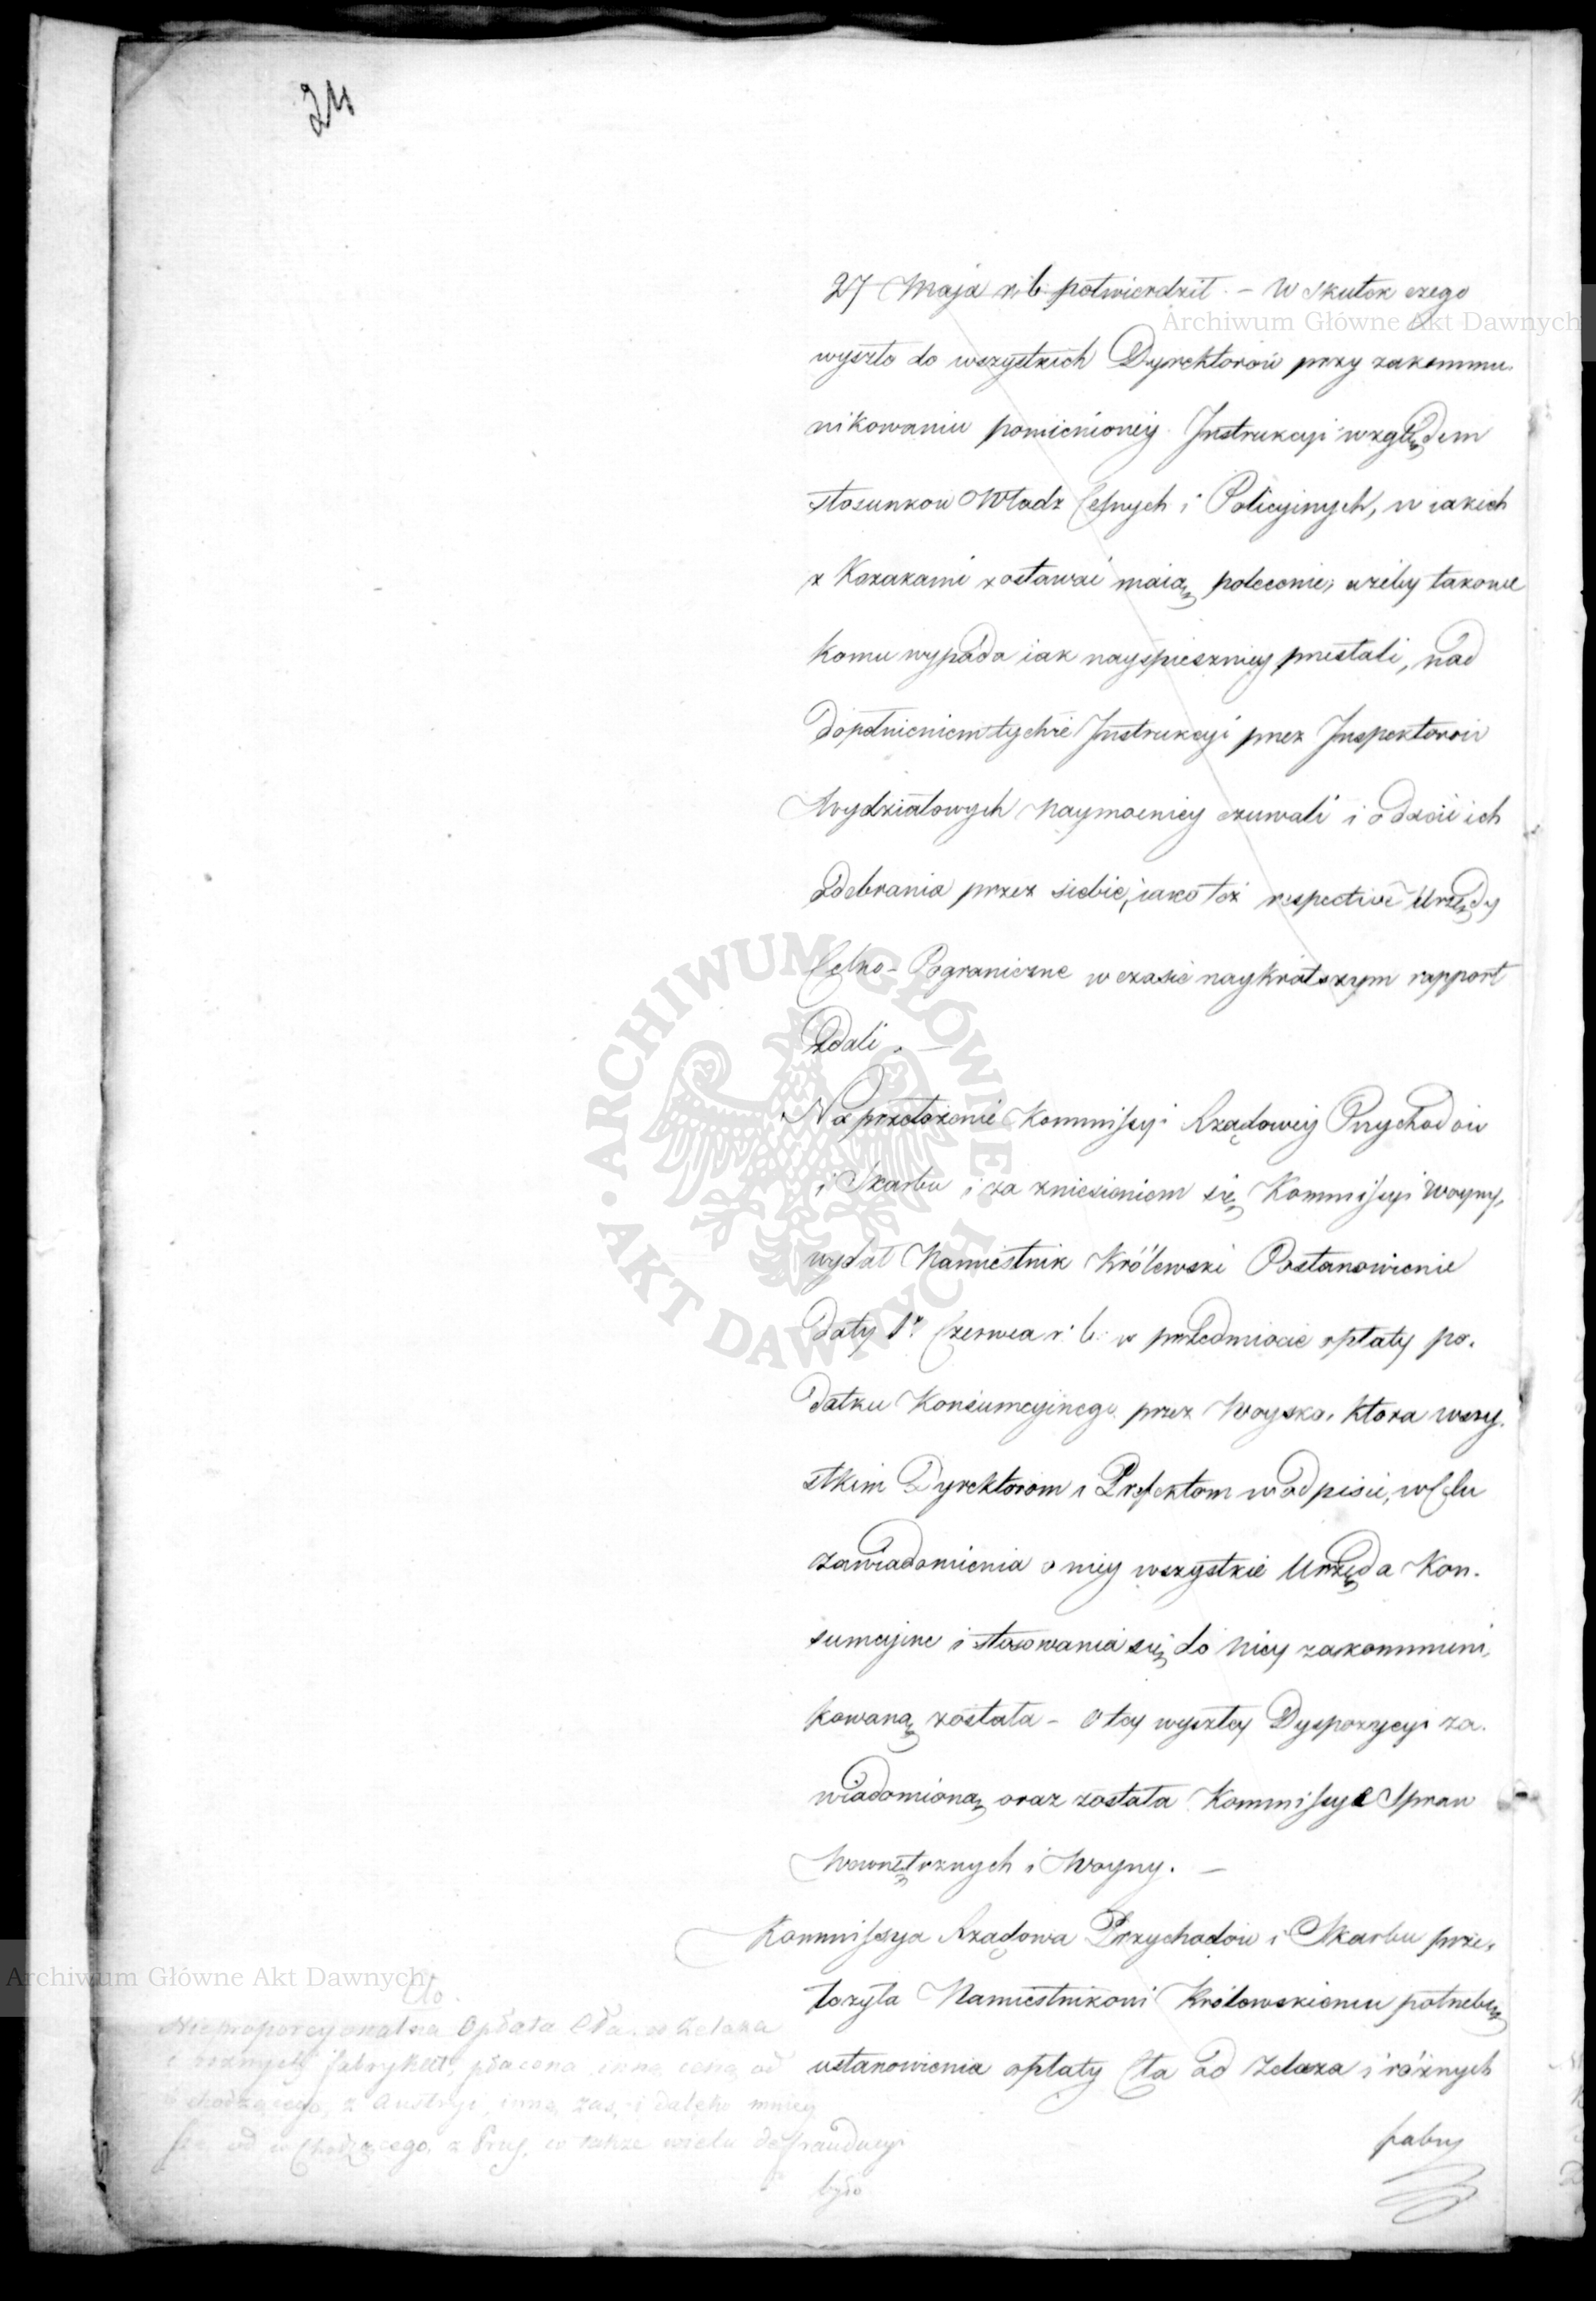 24
27 Maja r. b. potwierdził. – W skutek czego
wyszło do wszystkich Dyrektorów przy zakommu-
nikowaniu pomienioney Instrukcyi względem
stosunkow Władz Celnych i Policyinych, w iakich
z Kozakami zostawać maią, polecenie, ażeby takowe
komu wypada iak nayspieszniey przestali, nad
dopełnieniem tychże Instrukcyi przez Inspektorów
Wydziałowych naymocniey czuwali i o dóyściu ich
odebrania przez siebie, iako też respective Urzędy
Celno-Pograniczne w czasie naykrótszym rapport
zdali. –
Na przełożenie Kommissyi Rządowey Przychodów
i Skarbu i za zniesieniem się Kommissyi Woyny,
wydał Namiestnik Królewski Postanowienie
daty 1o Czerwca r. b. w przedmiocie opłaty po-
datku Konsumcyinego przez Woysko, ktora wszy-
stkim Dyrektorom i Prefektom w odpisie, w Celu
zawiadomienia o niey wszystkie Urzęda Kon-
sumcyine i stosowania się do niey zakommuni-
kowaną została – O tey wyszłey Dyspozycyi za-
wiadomioną oraz została Kommissye Spraw
Wewnętrznych i Woyny. –
Kommissya Rządowa Przychodów i Skarbu prze-
łożyła Namiestnikowi Królewskiemu potrzebę
ustanowienia opłaty Cła od Żelaza i różnych
fabry
Cło.
Nieproporcyonalna Opłata Cła od Żelaza
i roznych fabrykat, płacona inna cena od
wchodzącego z Austryi, inna zaś i daleko mniey
od wchodzącego z Prus, w takze wielu defraudacyi
było
Archiwum Główne Akt Dawnych
ARCHIWUM GŁÓWNE AKT DAWNYCH
Archiwum Główne Akt Dawnych